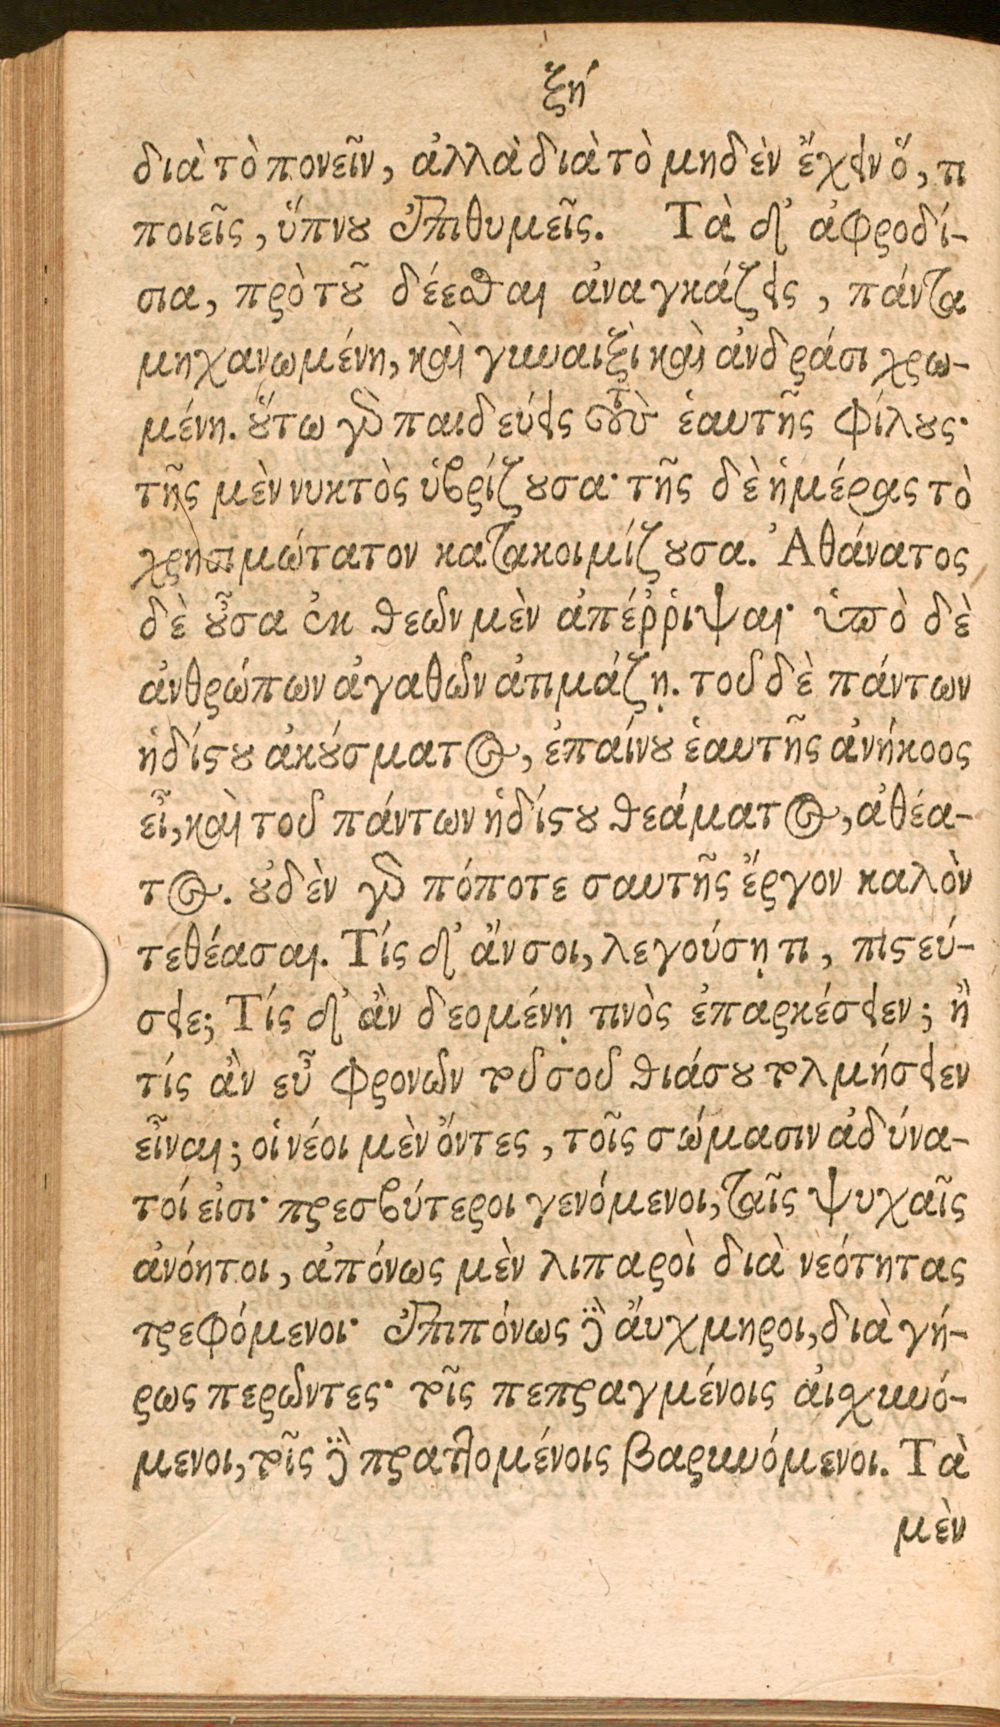 ξη´
διὰ τὸ πονεῖν, ἀλλὰ διὰ τὸ μηδὲν ἔχειν ὅ, τι
ποιεῖς, ὕπνου ἐπιθυμεῖς. Τὰ δ᾽ ἀφροδί-
σια, πρὸ τοῦ δέεσθαι ἀναγκάζεις, πάντα
μηχανωμένη, καὶ γυναιξὶ καὶ ἀνδράσι χρω-
μένη. οὕτω γὰρ παιδεύεις τοὺς ἑαυτῆς φίλους·
τῆς μὲν νυκτὸς ὑβρίζουσα· τῆς δὲ ἡμέρας τὸ
χρησιμώτατον κατακοιμίζουσα. Ἀθάνατος
δὲ οὖσα ἐκ θεῶν μὲν ἀπέῤῥιψαι· ὑπὸ δὲ
ἀνθρώπων ἀγαθῶν ἀτιμάζῃ. τοῦ δὲ πάντων
ἡδίστου ἀκούσματος, ἐπαίνου ἑαυτῆς ἀνήκοος
εἶ, καὶ τοῦ πάντων ἡδίστου θεάματος, ἀθέα-
τος. οὐδὲν γὰρ πόποτε σαυτῆς ἔργον καλὸν
τεθέασαι. Τίς δ᾽ ἄν σοι, λεγούσῃ τι, πιστεύ-
σειε; Τίς δ᾽ ἂν δεομένῃ τινὸς ἐπαρκέσειεν; ἢ
τίς ἂν εὖ φρονῶν τοῦ σοῦ θιάσου τολμήσειεν
εἶναι; οἱ νέοι μὲν ὄντες, τοῖς σώμασιν ἀδύνα-
τοί εἰσι· πρεσβύτεροι γενόμενοι, ταῖς ψυχαῖς
ἀνόητοι, ἀπόνως μὲν λιπαροὶ διὰ νεότητας
τρεφόμενοι· ἐπιπόνως δὲ ἀύχμηροι, διὰ γή-
ρως περῶντες· τοῖς πεπραγμένοις αἰσχυνό-
μενοι, τοῖς δὲ πραττομένοις βαρυνόμενοι. Τὰ
μὲν